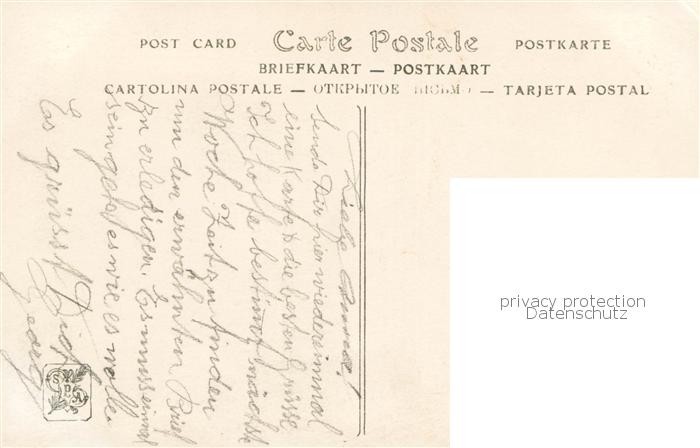 POST CARD Carte Postale POSTKARTE
BRIEFKAART — POSTKAART
CARTOLINA POSTALE — ОТКРЫТОЕ ПИСЬМО — TARJETA POSTAL
Liebe Anna!
sende Dir hier wiedereinmal
eine Karte & die besten Grüsse
Ich hoffe bestimmt nächste
Woche Zeit zu finden
um den erwähnten Brief
zu erledigen. Es muss einmal
sein gehe es wie es wolle
Es grüsst Dich
Georg
SPA
privacy protection
Datenschutz